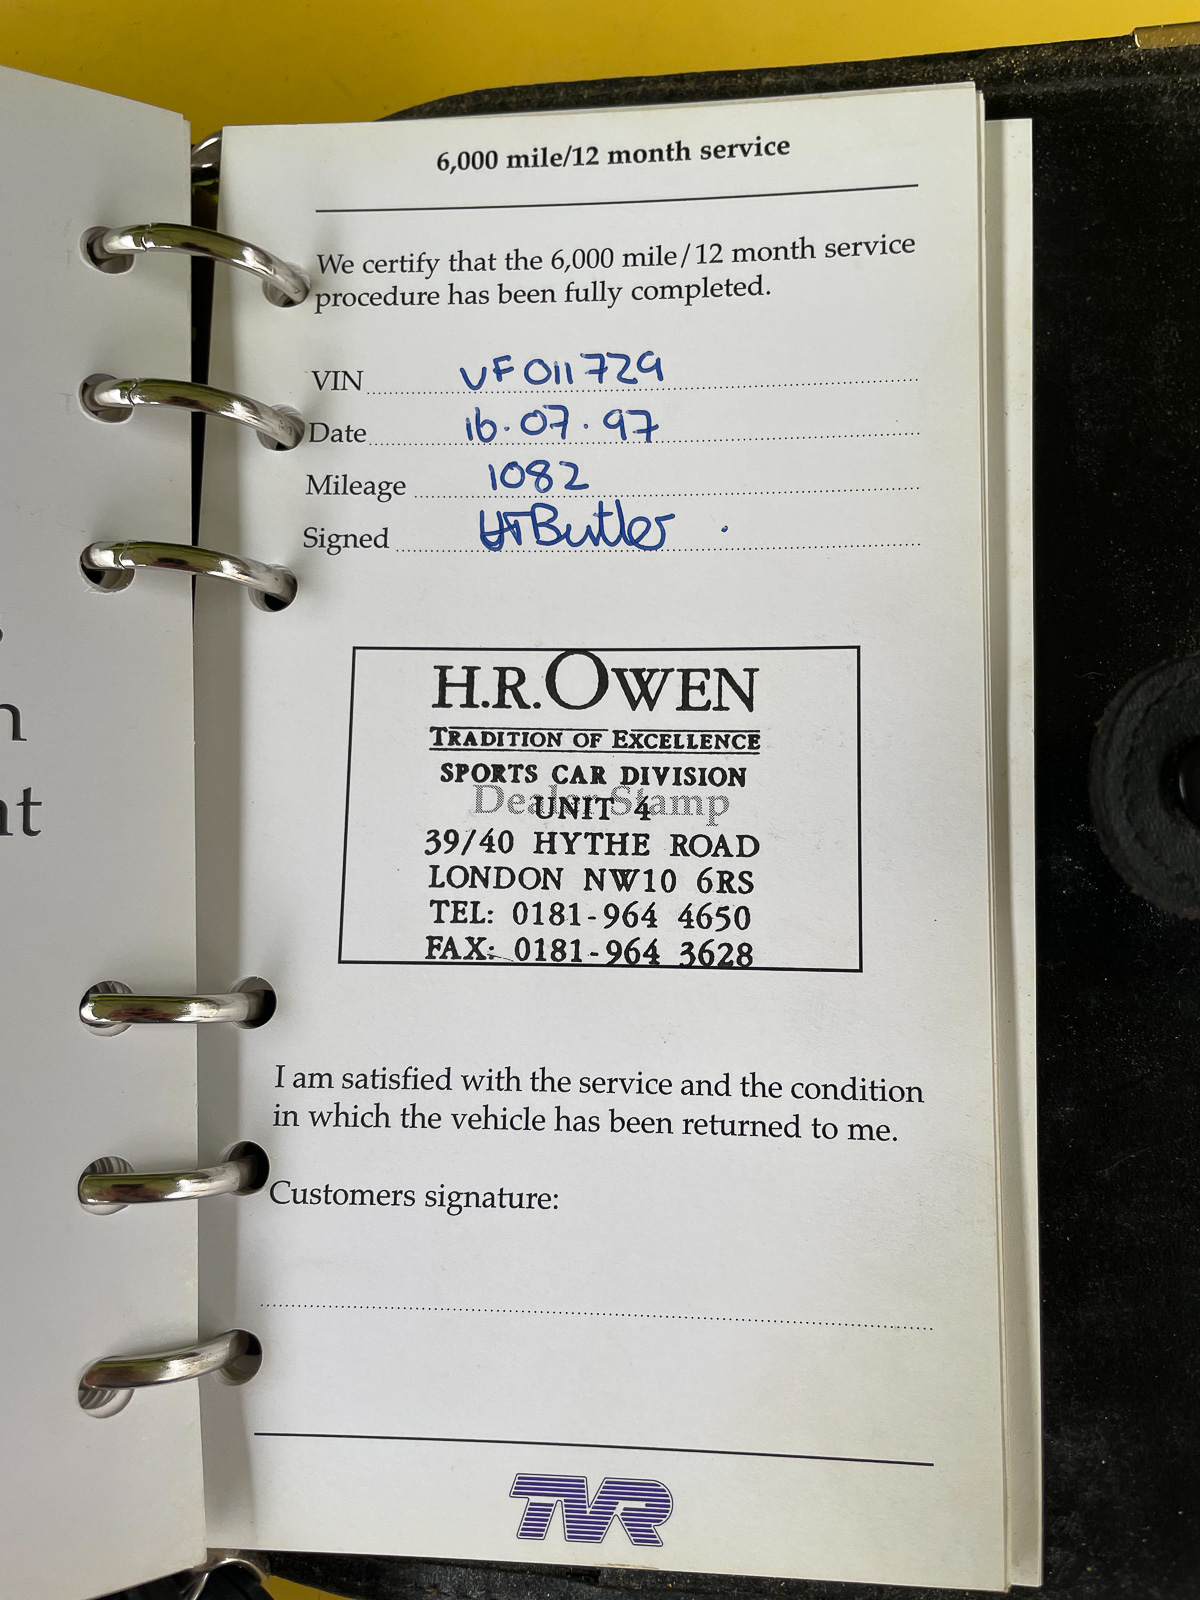 6,000 mile/12 month service
We certify that the 6,000 mile/12 month service
procedure has been fully completed.
VIN VF011729
Date 16.07.97
Mileage 1082
Signed Butler
H.R.OWEN
TRADITION OF EXCELLENCE
SPORTS CAR DIVISION
Dealer Stamp
UNIT 4
39/40 HYTHE ROAD
LONDON NW10 6RS
TEL: 0181-964 4650
FAX: 0181-964 3628
I am satisfied with the service and the condition
in which the vehicle has been returned to me.
Customers signature:
TVR